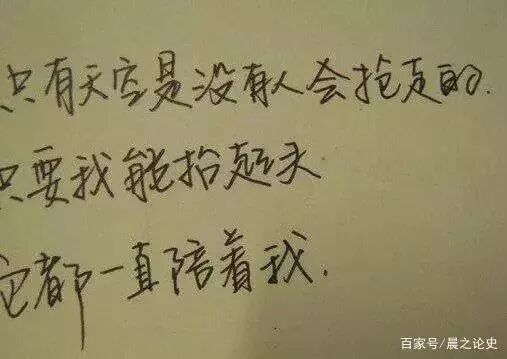 只有天空是没有人会抢走的.
只要我能抬起头
它都一直陪着我.
百家号/晨之论史